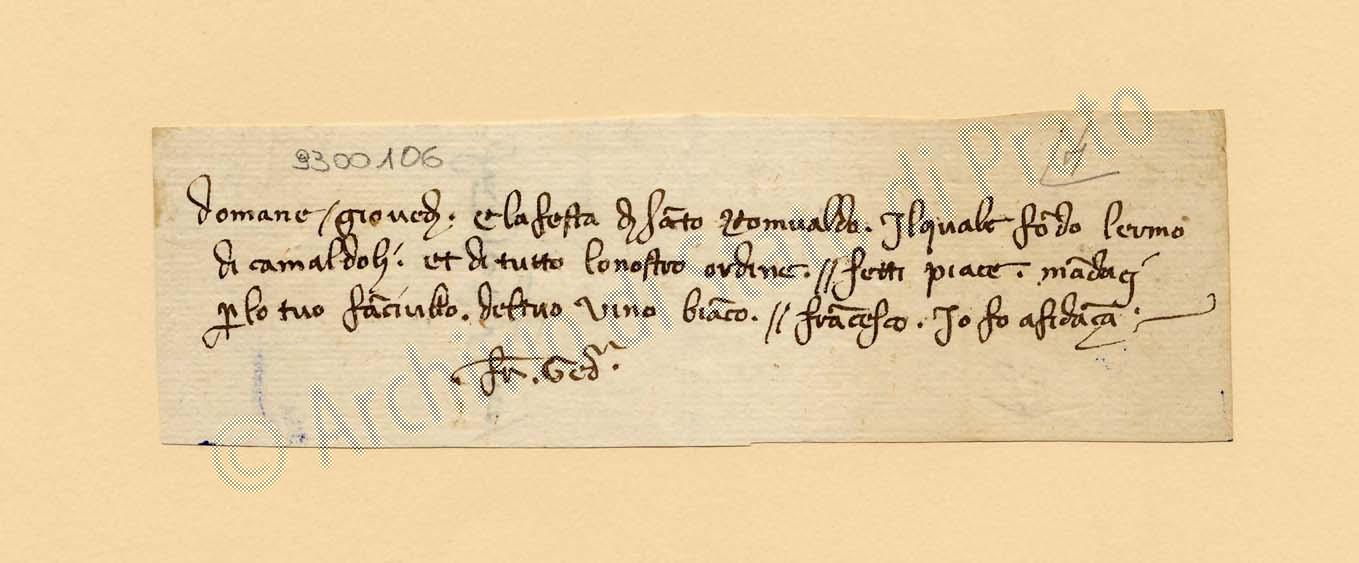 9300106
domane / giovedi . e la festa di sa͞cto Romualdo . Il quale fo͞do lermo
di camaldoli . et di tutto lo nostro ordine . // se tti piace . ma͞daci
ꝑ lo tuo fa͞ciullo . del tuo vino bia͞co . // fra͞cesco . Io fo a fida͞ça .
. fr͞ . Ged͞ .
© Archivio di Stato di Prato